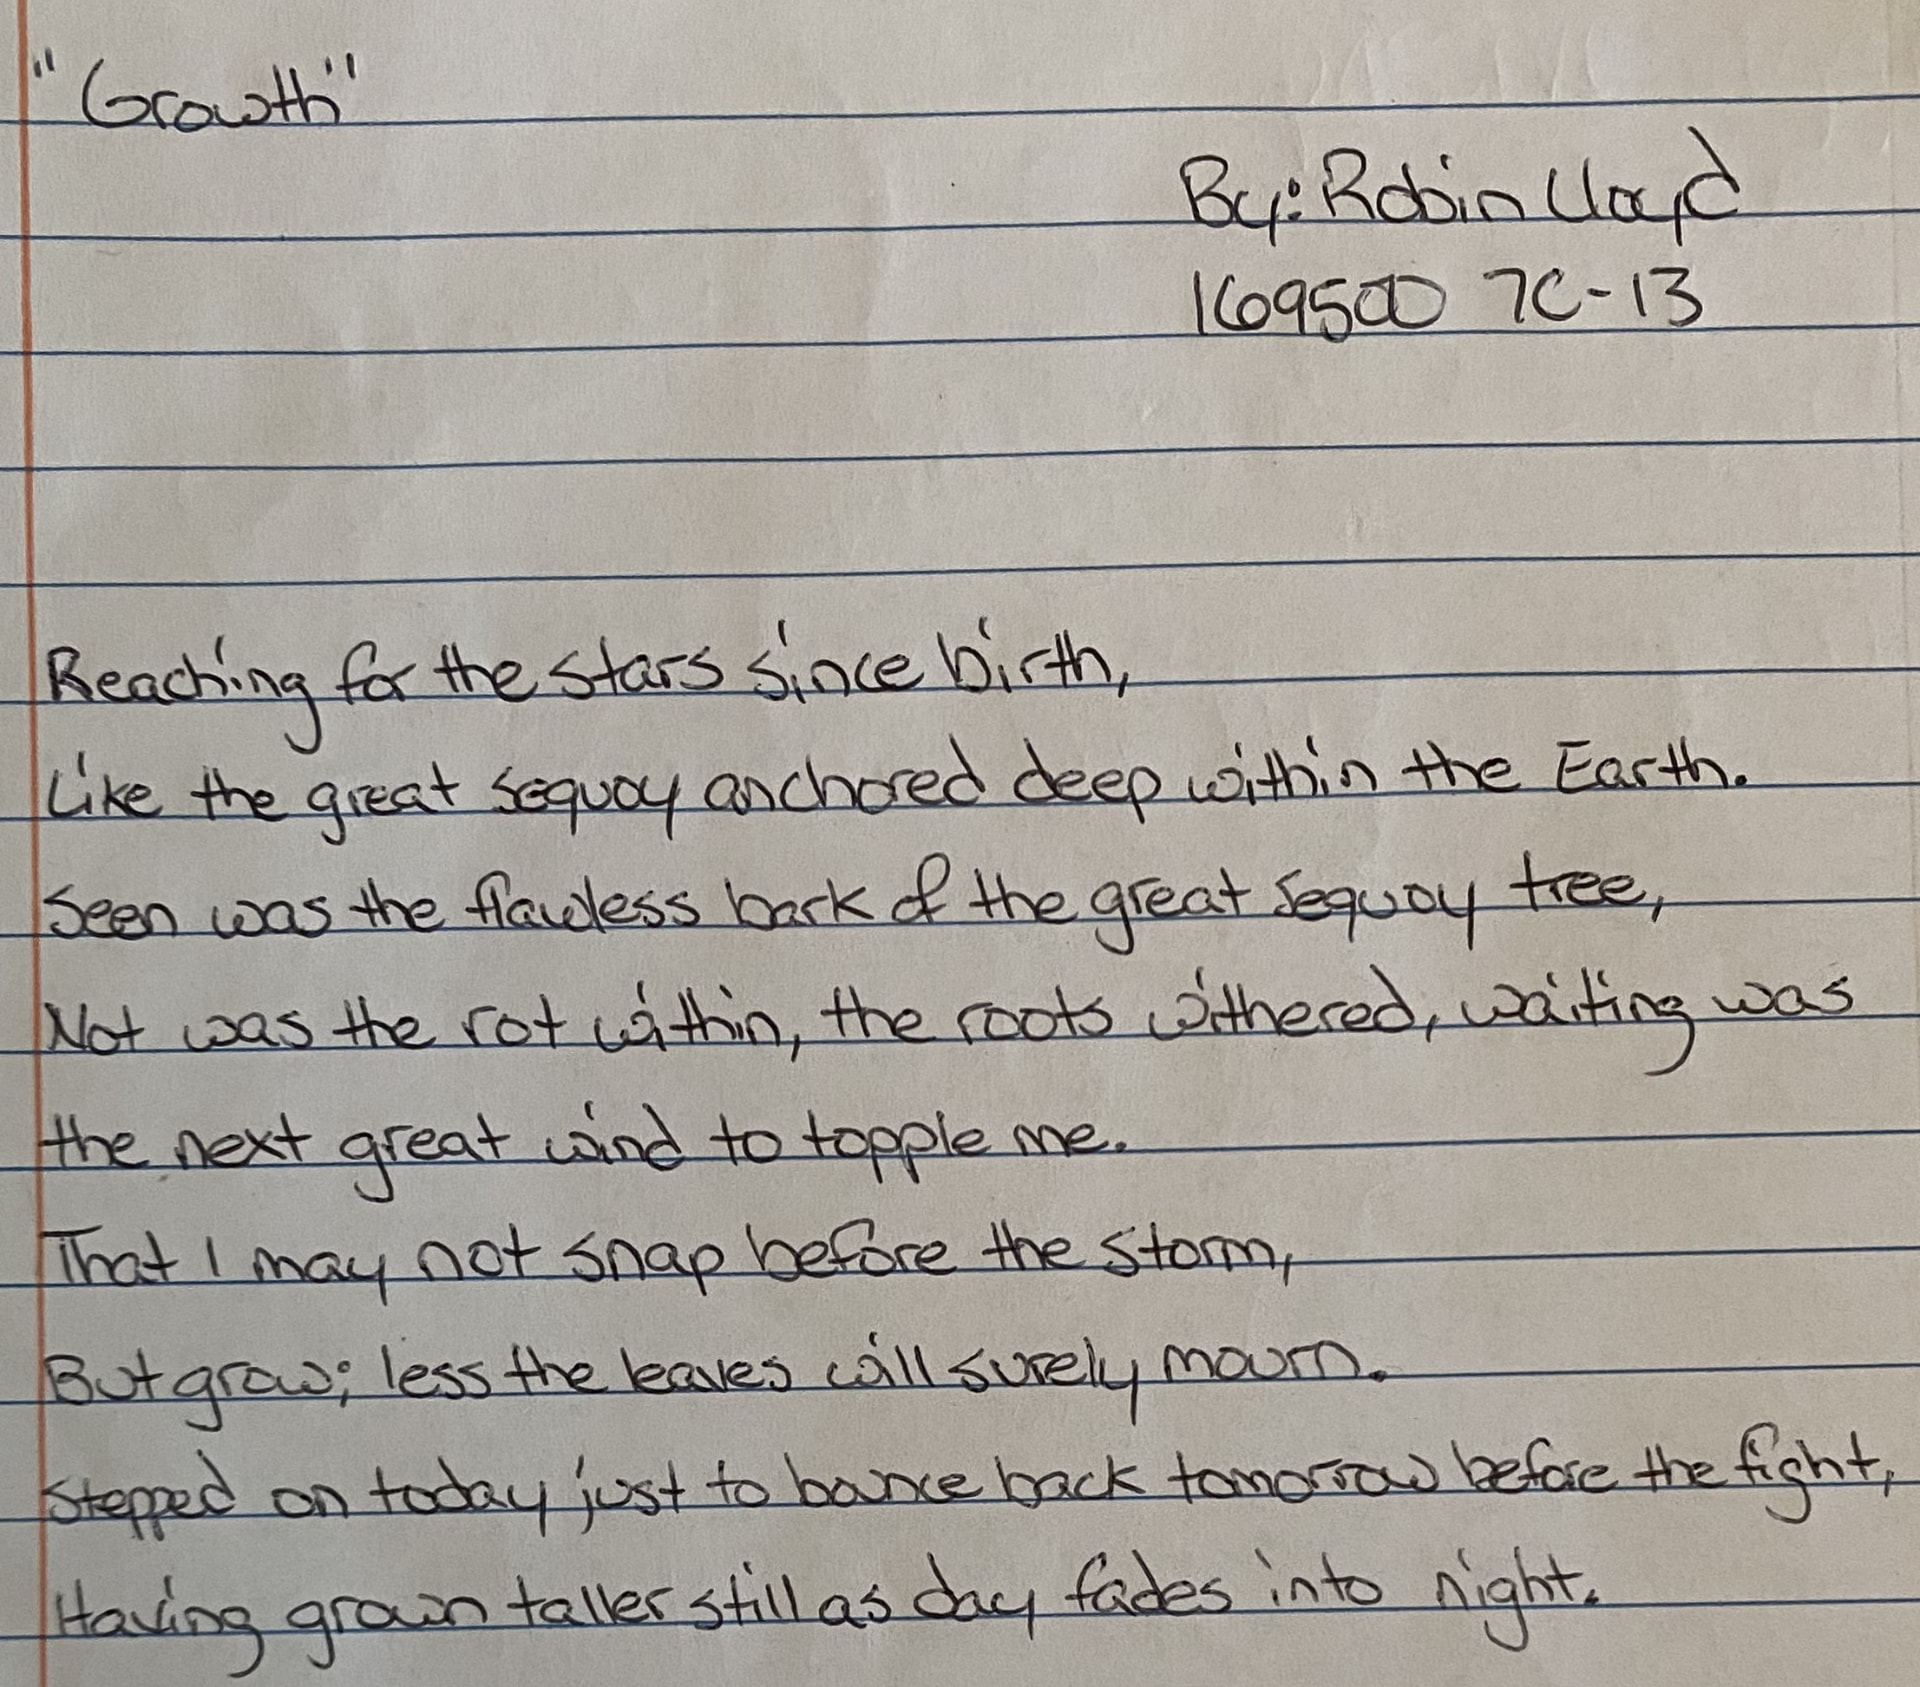 "Growth"
By: Robin Lloyd
169500 7C-13
Reaching for the stars since birth,
Like the great sequoy anchored deep within the Earth.
Seen was the flawless bark of the great sequoy tree,
Not was the rot within, the roots withered, waiting was
the next great wind to topple me.
That I may not snap before the storm,
But grow; less the leaves will surely mourn.
Stepped on today just to bounce back tomorrow before the fight,
Having grown taller still as day fades into night.